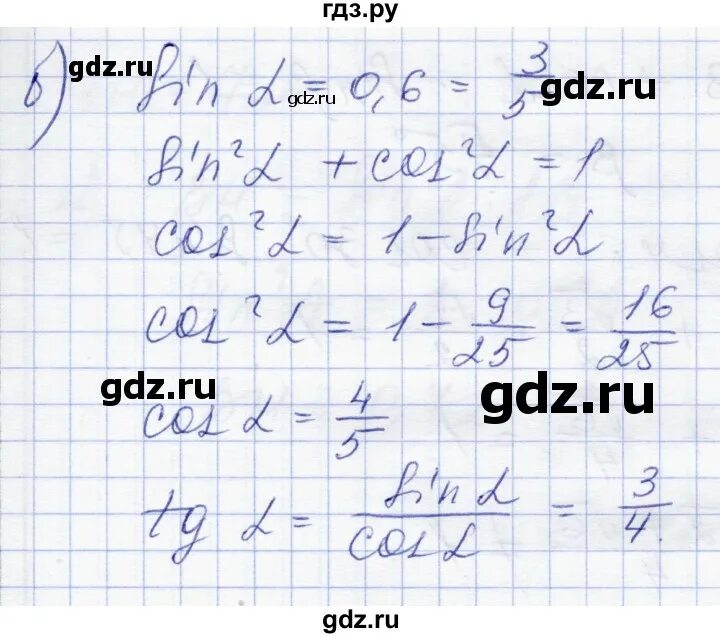 гдз.ру
gdz.ru
в) sin α = 0,6 = 3/5
gdz.ru
gdz.ru
sin²α + cos²α = 1
cos²α = 1 - sin²α
cos²α = 1 - 9/25 = 16/25
gdz.ru
gdz.ru
cos α = 4/5
tg α = sin α / cos α = 3/4.
gdz.ru
gdz.ru